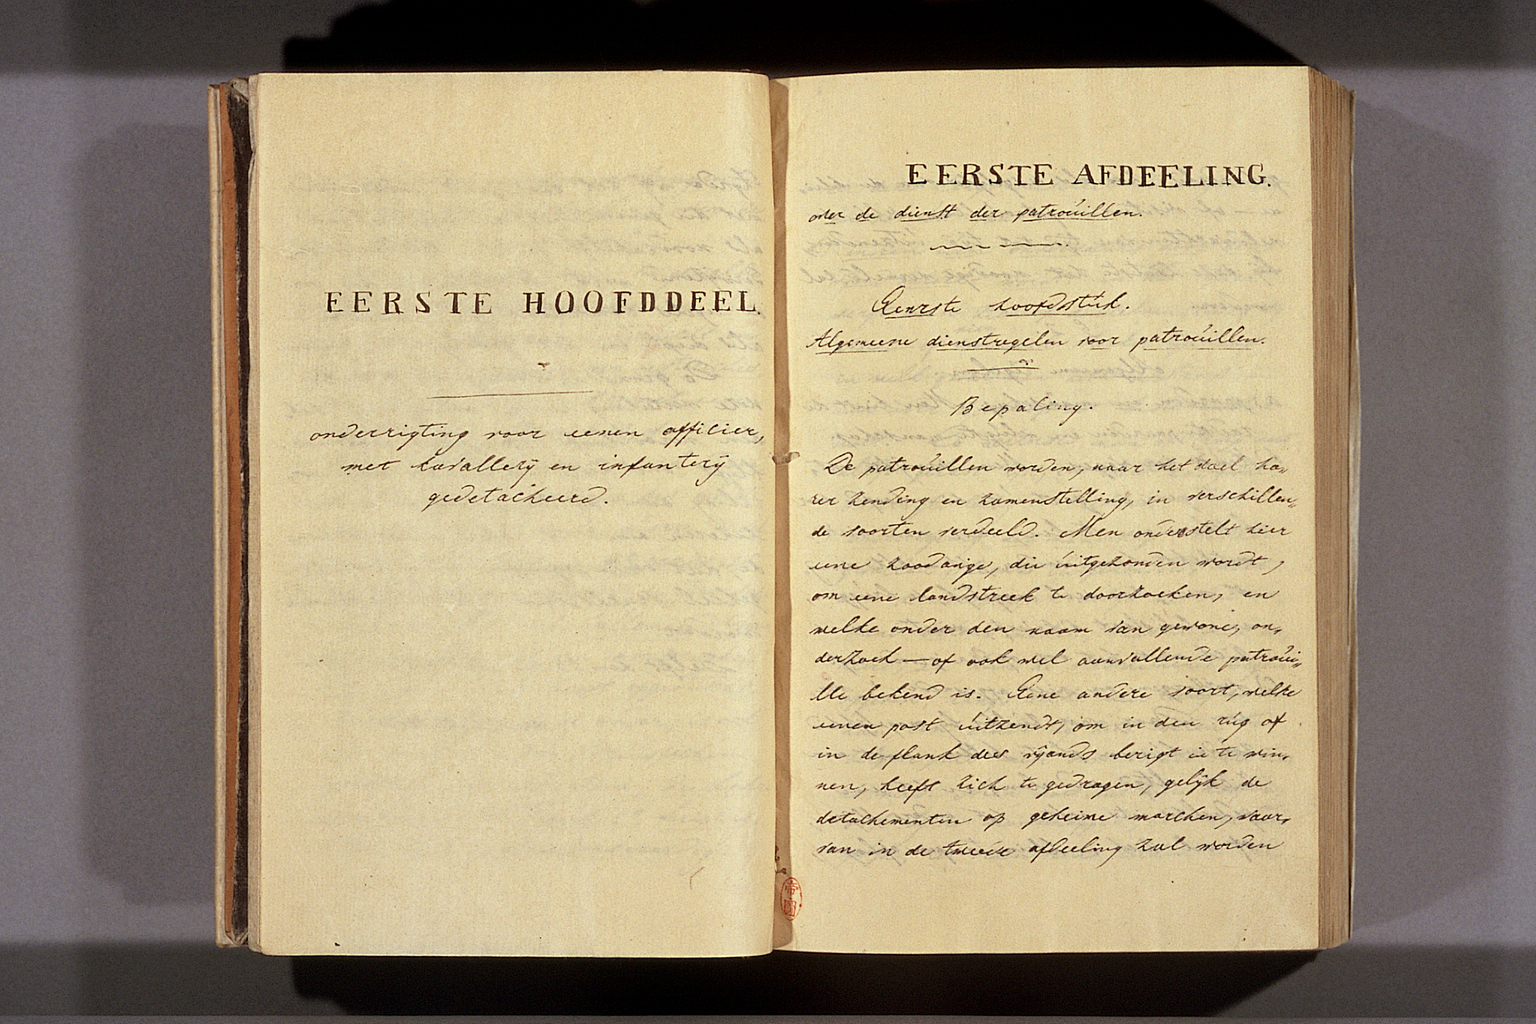 EERSTE HOOFDDEEL.
onderrigting voor eenen officier,
met kavallerij en infanterij
gedetacheerd.
EERSTE AFDEELING.
over de dienst der patrouillen.
Eerste hoofdstuk.
Algemeene dienstregelen voor patrouillen.
Bepaling.
De patrouillen worden, naar het doel ha-
rer zending en zamenstelling, in verschillen-
de soorten verdeeld. Men onderstelt hier
eene zoodanige, die uitgezonden wordt,
om eene landstreek te doorzoeken, en
welke onder den naam van gewone, on-
derzoek — of ook wel aanvallende patroui-
lle bekend is. Eene andere soort, welke
eenen post uitzendt, om in den rug of
in de flank des vijands berigt in te win-
nen, heeft zich te gedragen, gelijk de
detachementen op geheime marchen, waar-
van in de tweede afdeeling zal worden